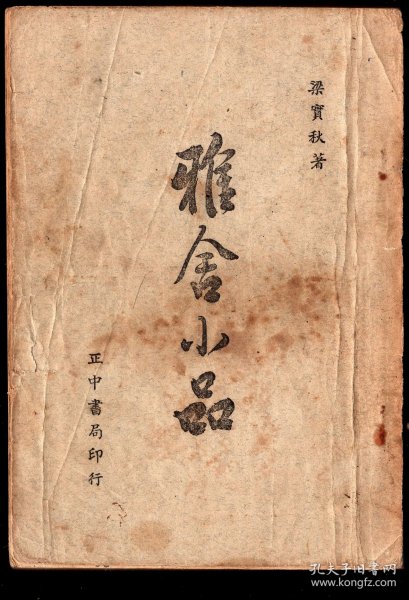 梁實秋著
雅舍小品
正中書局印行
孔夫子旧书网
www.kongfz.com